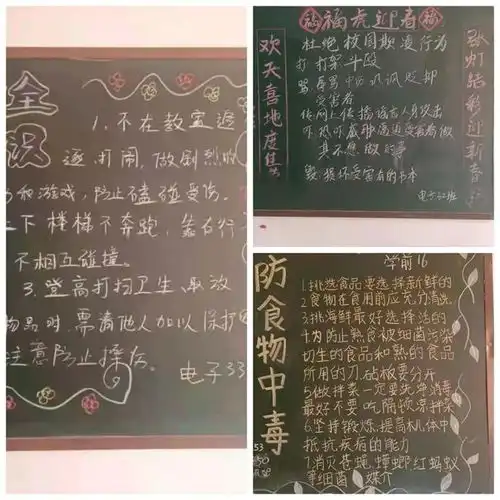 全
识
1.不在教室追
逐、打闹、做剧烈的
和游戏,防止磕碰受伤。
上下楼梯不奔跑,靠右行
不相互碰撞。
3.登高打扫卫生、取放
物品时,要请他人加以保护
注意防止摔伤。
电子33
福虎迎春
欢天喜地度佳节
张灯结彩迎新春
杜绝校园欺凌行为
打:打架斗殴
骂:辱骂中伤讥讽贬抑
受害者
传:网上传播谣言人身攻击
吓:恐吓威胁逼迫受害者做
其不想做的事
毁:损坏受害者的书本
电子32班
学前16
防食物中毒
1.挑选食品要选择新鲜的
2.食物在食用前应充分清洗
3.挑海鲜最好选择活的
4.为防止熟食被细菌污染
切生的食品和熟的食品
所用的刀、砧板要分开
5.做拌菜一定要洗净消毒
最好不要吃隔顿凉拌菜
6.坚持锻炼,提高机体中
抵抗疾病的能力
7.消灭苍蝇蟑螂红蚂蚁
等细菌媒介